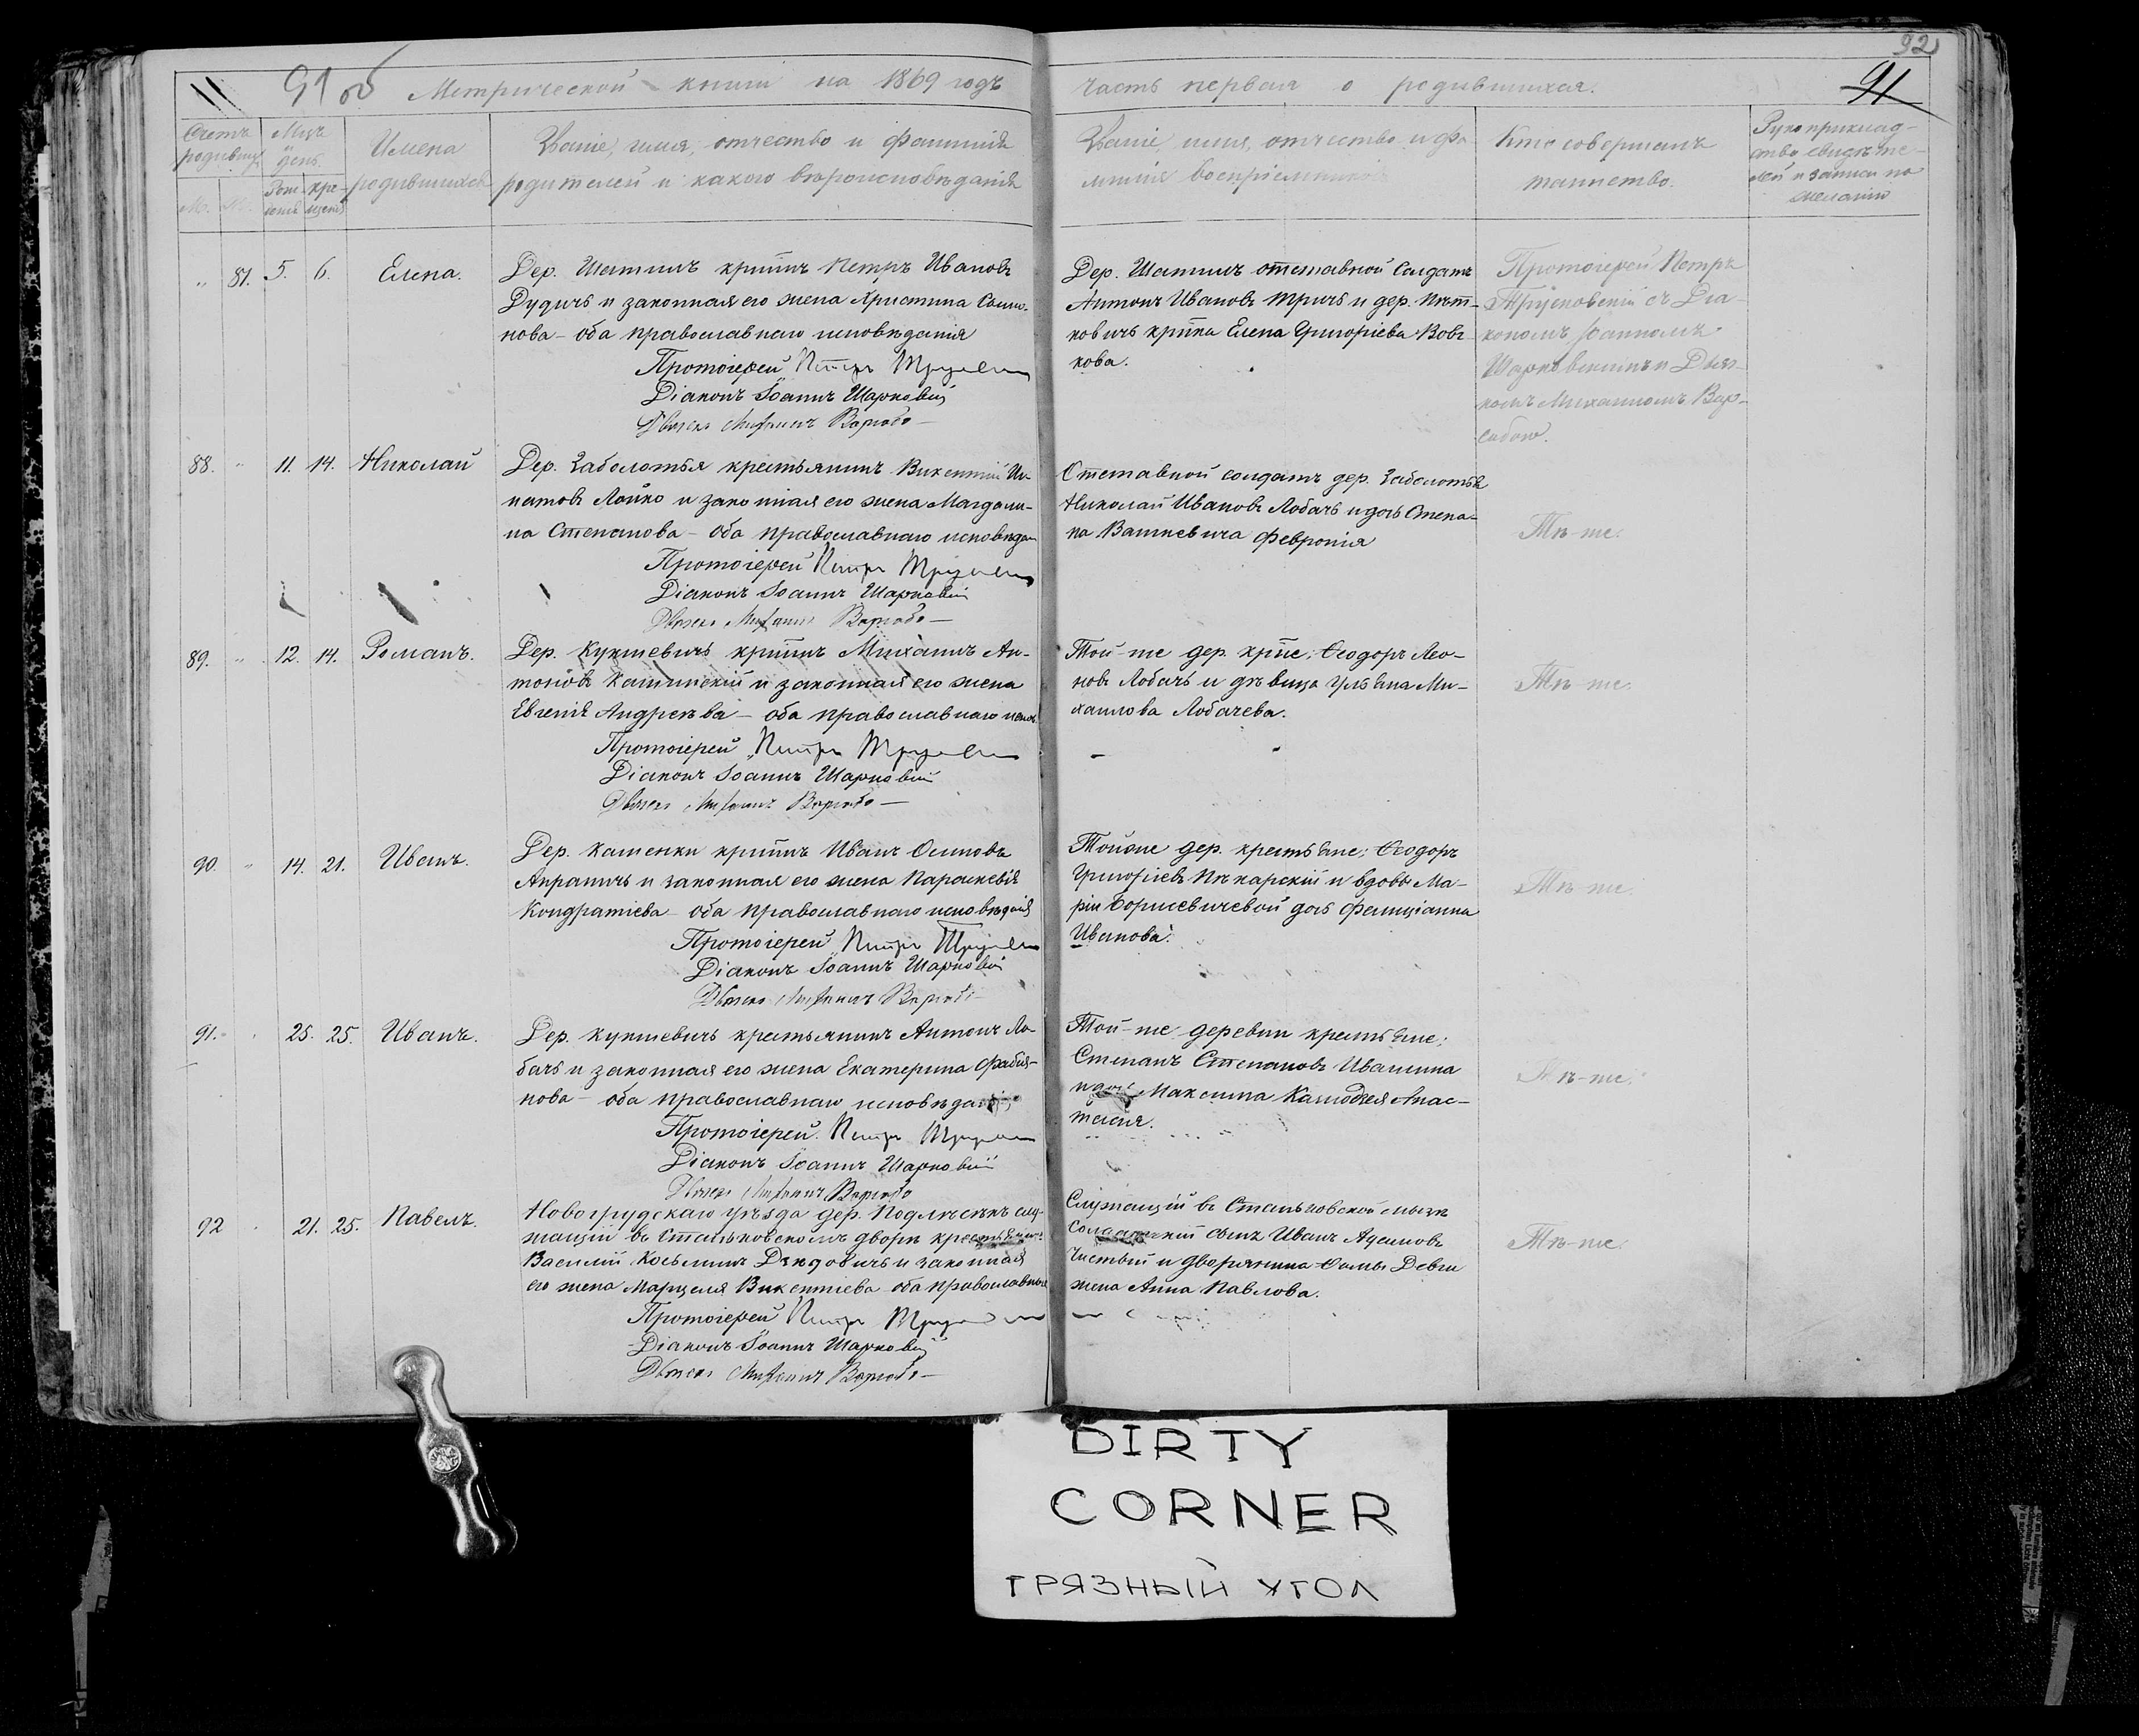 92
11 91 об Метрической книги на 1869 годъ
часть первая о родившихся. 91
Счетъ родивших
Мцъ и день.
Рож денія
кре щенія
М.
Имена родившихся
Званіе, имя, отчество и фамилія
родителей и какого вѣроисповѣданія
Званіе, имя, отчество и фа
милія воспріемниковъ
Кто совершалъ
таинство.
Рукоприклад-
ство свидѣте-
лей и записи по
желанію
" 81. 5. 6. Елена.
Дер. Шатилъ крпинъ Петръ Ивановъ
Дудичъ и законная его жена Христина Симо-
нова – оба православнаго исповѣданія
Протоіерей Петръ
Діаконъ Іоаннъ Шарковскій
Дьячекъ Михаилъ
Дер. Шатилъ отставной Солдатъ
Антонъ Ивановъ Тричъ и дер. Пет-
ковичъ крпка Елена Григоріева Вов-
кова.
Протоіерей Петръ
съ Діа-
кономъ Іоанномъ
Шарковскимъ и Дьяч-
комъ Михаиломъ
88. " 11. 14. Николай
Дер. Заболотья крестьянинъ Викентій Иг-
натовъ Лойко и законная его жена Магдали-
на Степанова – оба православнаго исповѣдан
Протоіерей Петръ
Діаконъ Іоаннъ Шарковскій
Дьячекъ Михаилъ
Отставной солдатъ дер. Заболотья
Николай Ивановъ Лобачъ и дочь Степа-
на Вашкевича Февронія
Тѣ-же.
89. " 12. 14. Романъ.
Дер. Кукшевичъ крпинъ Михаилъ Ан-
тоновъ Калинскій и законная его жена
Евгенія Андреева – оба православнаго испов
Протоіерей Петръ
Діаконъ Іоаннъ Шарковскій
Дьячекъ Михаилъ
Той-же дер. крпне: Ѳеодоръ Лео-
новъ Лобачъ и дѣвица Ульяна Ми-
хаилова Лобачева.
Тѣ-же.
90. " 14. 21. Иванъ.
Дер. Каменки крпинъ Иванъ Осиповъ
и законная его жена Параскевія
Кондратіева – оба православнаго исповѣданія
Протоіерей Петръ
Діаконъ Іоаннъ Шарковскій
Дьячекъ Михаилъ
Тойже дер. крестьяне: Ѳеодоръ
Григоріевъ Пекарскій и вдовы Ма-
ріи Борисевичевой дочь Фелиціанна
Иванова.
Тѣ-же.
91. 25. 25. Иванъ.
Дер. Кукшевичъ крестьянинъ Антонъ Ло-
бачъ и законная его жена Екатерина Фабія-
нова – оба православнаго исповѣданія
Протоіерей Петръ
Діаконъ Іоаннъ Шарковскій
Дьячекъ Михаилъ
Той-же деревни крестьяне:
Степанъ Степановъ Ивашина
и дочь Максима Анас-
тасія.
Тѣ-же.
92 21. 25. Павелъ.
Новогрудскаго уѣзда дер. Подлѣсѣкъ слу-
жащій въ Станьковскомъ дворѣ крестьянинъ
Василій Косьминъ и законная
его жена Марцеля Викентіева – оба православные
Протоіерей Петръ
Діаконъ Іоаннъ Шарковскій
Дьячекъ Михаилъ
Служащій въ Станьковской мызѣ
Солдатскій сынъ Иванъ Адамовъ
Чистый и дворянина Ѳомы
жена Анна Павлова.
Тѣ-же.
DIRTY
CORNER
ГРЯЗНЫЙ УГОЛ